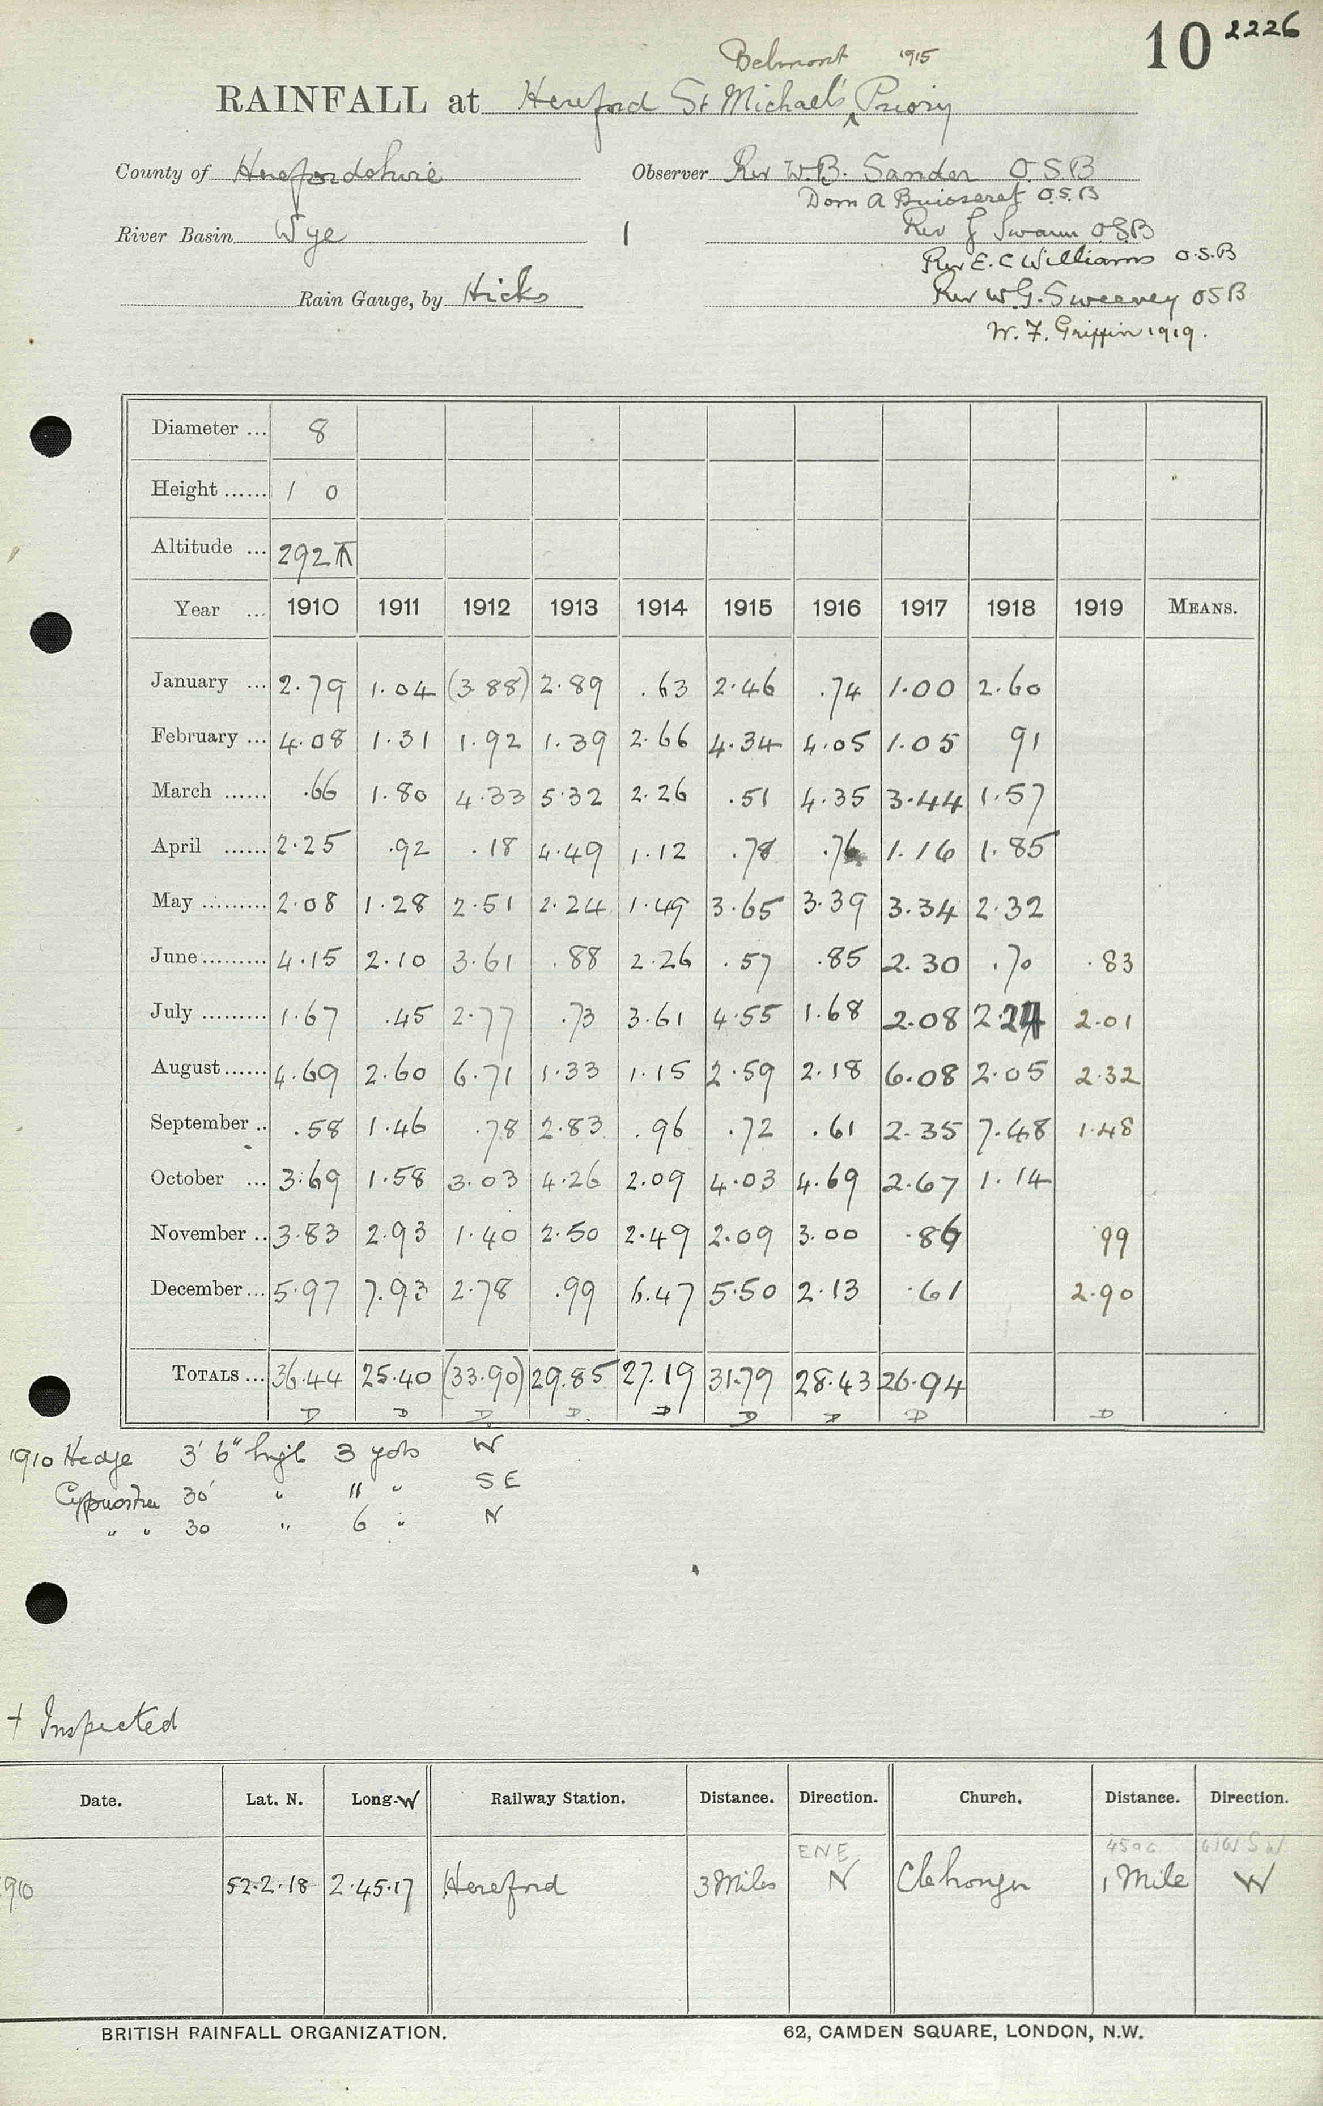 10 2226
Belmont 1915
RAINFALL at Hereford St Michael's ^ Priory
County of Herefordshire Observer Rev W.B. Sander O.S.B
Dom A O.S.B
River Basin Wye 1 Rev J Swann OSB
Rev E. C Williams O.S.B
Rain Gauge, by Hicks Rev W.G. Sweeney OSB
W. F. Griffin 1919.
Diameter ... 8
Height ...... 1 0
Altitude ... 292
Year ... 1910 1911 1912 1913 1914 1915 1916 1917 1918 1919 MEANS.
January ... 2.79 1.04 (3.88) 2.89 .63 2.46 .74 1.00 2.60
February ... 4.08 1.31 1.92 1.39 2.66 4.34 4.05 1.05 91
March ...... .66 1.80 4.33 5.32 2.26 .51 4.35 3.44 1.57
April ...... 2.25 .92 .18 4.49 1.12 .78 .76 1.16 1.85
May ......... 2.08 1.28 2.51 2.24 1.49 3.65 3.39 3.34 2.32
June ......... 4.15 2.10 3.61 .88 2.26 .57 .85 2.30 .70 .83
July ......... 1.67 .45 2.77 .73 3.61 4.55 1.68 2.08 2.24 2.01
August ...... 4.69 2.60 6.71 1.33 1.15 2.59 2.18 6.08 2.05 2.32
September .. .58 1.46 .78 2.83 .96 .72 .61 2.35 7.48 1.48
October ... 3.69 1.58 3.03 4.26 2.09 4.03 4.69 2.67 1.14
November .. 3.83 2.93 1.40 2.50 2.49 2.09 3.00 .86 99
December ... 5.97 7.93 2.78 .99 6.47 5.50 2.13 .61 2.90
TOTALS ... 36.44 25.40 (33.90) 29.85 27.19 31.79 28.43 26.94
D D D D D D D D D
1910 Hedge 3' 6" high 3 yds W
30' " 11 " SE
" " 30 " 6 " N
† Inspected
Date. Lat. N. Long. W Railway Station. Distance. Direction. Church. Distance. Direction.
ENE
1910 52.2.18 2.45.17 Hereford 3 Miles N Clehonger 1 Mile W
BRITISH RAINFALL ORGANIZATION. 62, CAMDEN SQUARE, LONDON, N.W.